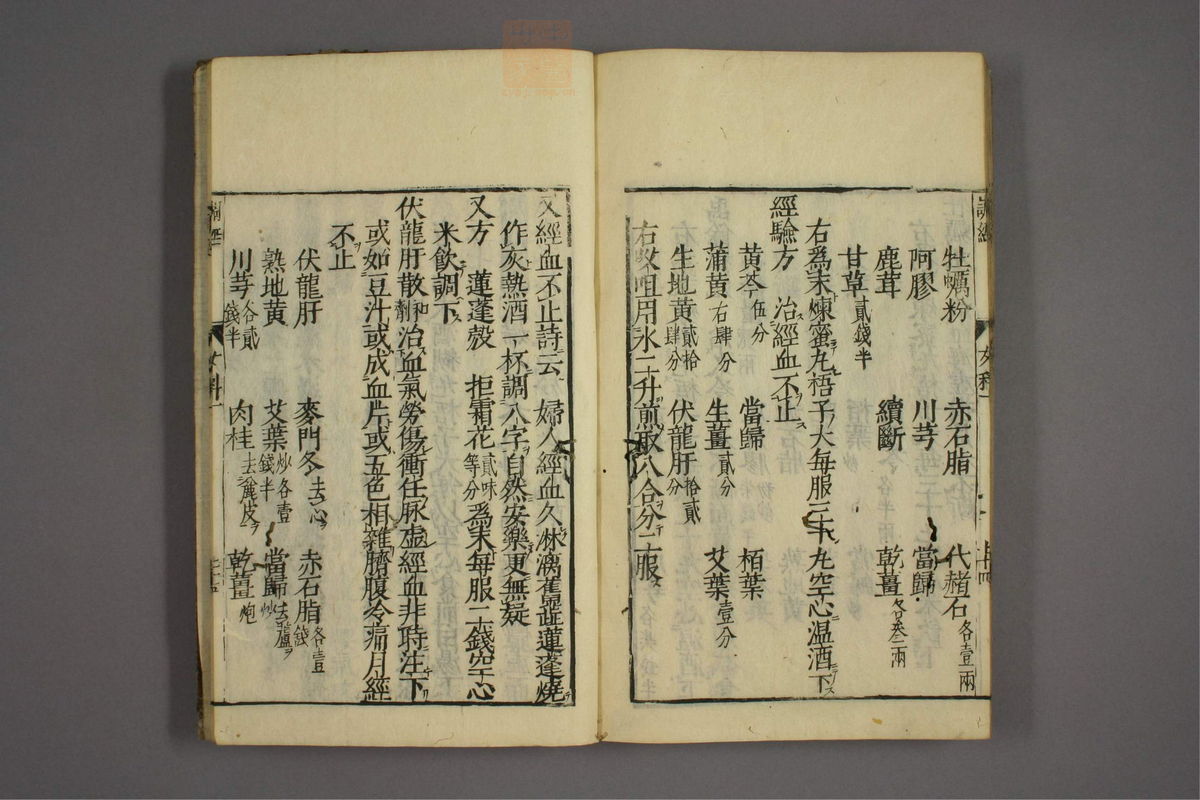 牡蠣粉 赤石脂 代赭石各壹兩
阿膠 川芎 當歸
鹿茸 續斷 乾薑各叄兩
甘草貳錢半
右爲末煉蜜丸梧子大每服三十丸空心温酒下
經驗方 治經血不止
黃芩伍分 當歸 栢葉
蒲黃右肆分 生薑貳分 艾葉壹分
生地黃貳拾肆分 伏龍肝拾貳分
右㕮咀用水二升煎取八合分二服
又經血不止詩云 婦人經血久淋漓舊蓮蓬燒
作灰熱酒一杯調八字自然安樂更無疑
又方 蓮蓬殼 拒霜花貳味等分爲末每服二錢空心
米飲調下
伏龍肝散和劑治血氣勞傷衝任脉虛經血非時注下
或如豆汁或成血片或五色相雜臍腹冷痛月經
不止
伏龍肝 麥門冬去心 赤石脂各壹錢
熟地黃 艾葉炒各壹錢半 當歸去蘆炒
川芎各貳錢半 肉桂去麄皮 乾薑炮
女科一